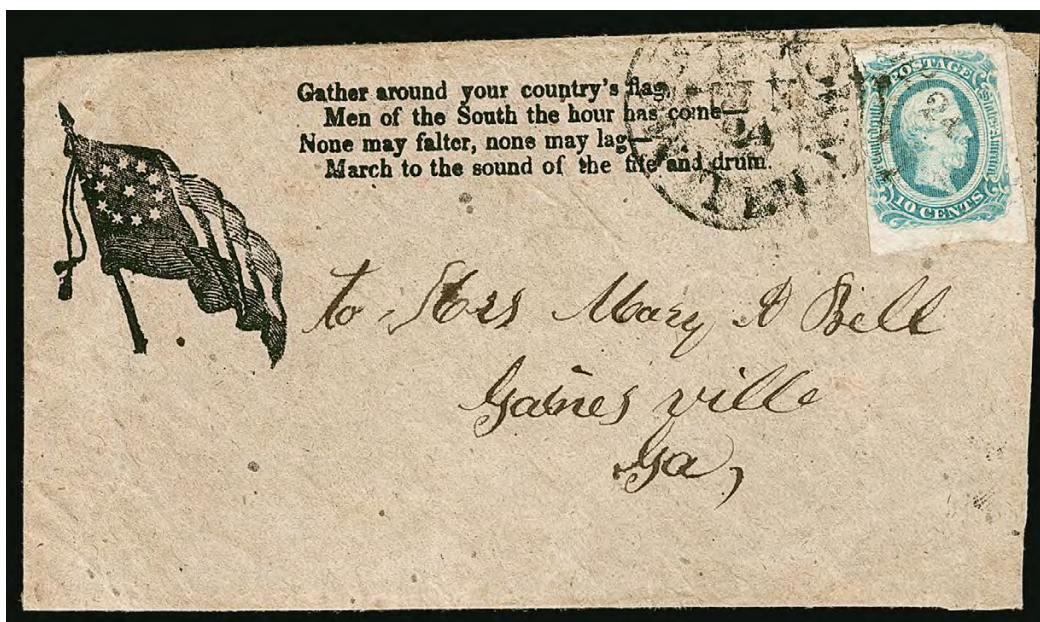 Gather around your country's flag,
Men of the South the hour has come—
None may falter, none may lag—
March to the sound of the fife and drum.
24
TEN
POSTAGE
Confederate States of America
24
10 CENTS
to Mrs Mary A Bell
Gaines ville
Ga,